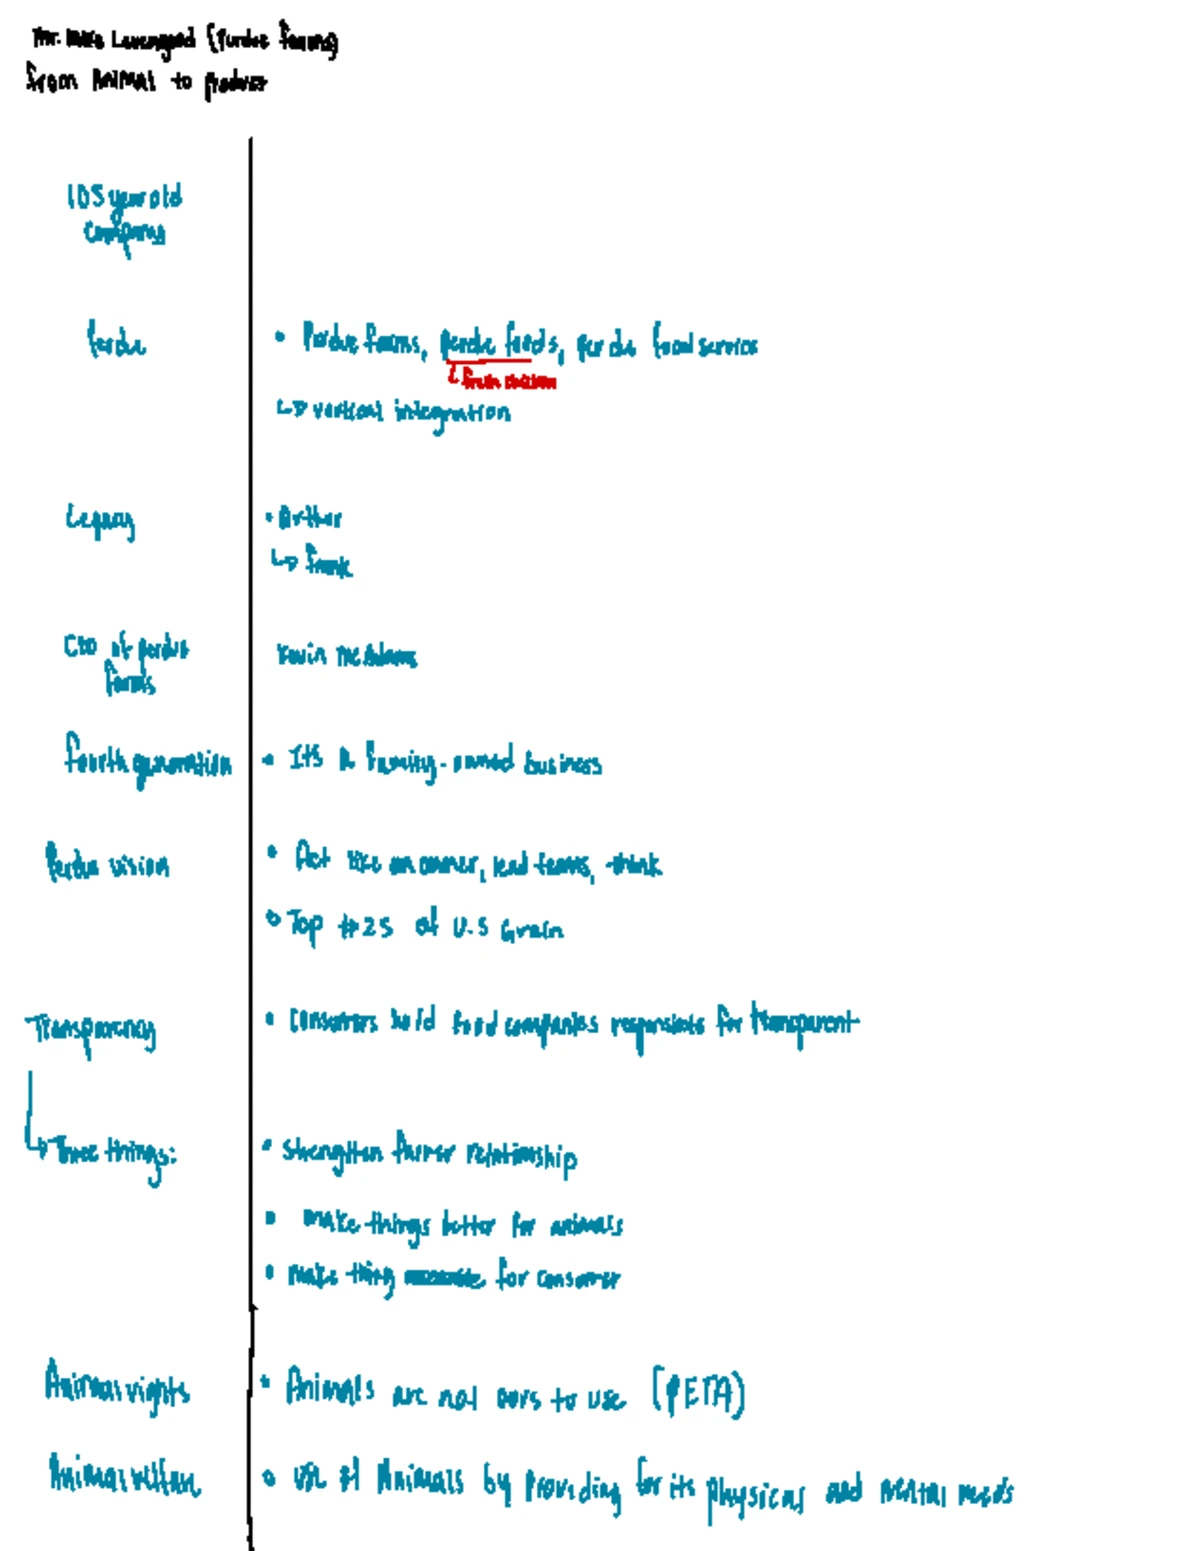 Mr. Mike Levengood (Purdue Farms)
From Animal to Product
105 year old
company
Perdue
• Perdue farms, perdue foods, perdue food service
↳ vertical integration
Legacy
• Arthur
↳ Frank
CEO of perdue
farms
Kevin McAdams
Fourth generation
• Its a family-owned business
Perdue vision
• Act like an owner, lead teams, think
• Top #25 of U.S Grain
Transparency
• Consumers hold food companies responsible for transparent
↳ Three things:
• Strengthen farmer relationship
• make things better for animals
• make thing for consumer
Animal rights
• Animals are not ours to use (PETA)
Animal welfare
• use of Animals by providing for its physical and mental needs